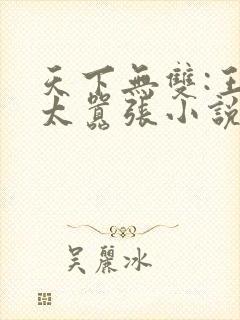 天下無雙:王
太囂張小說
吳麗冰